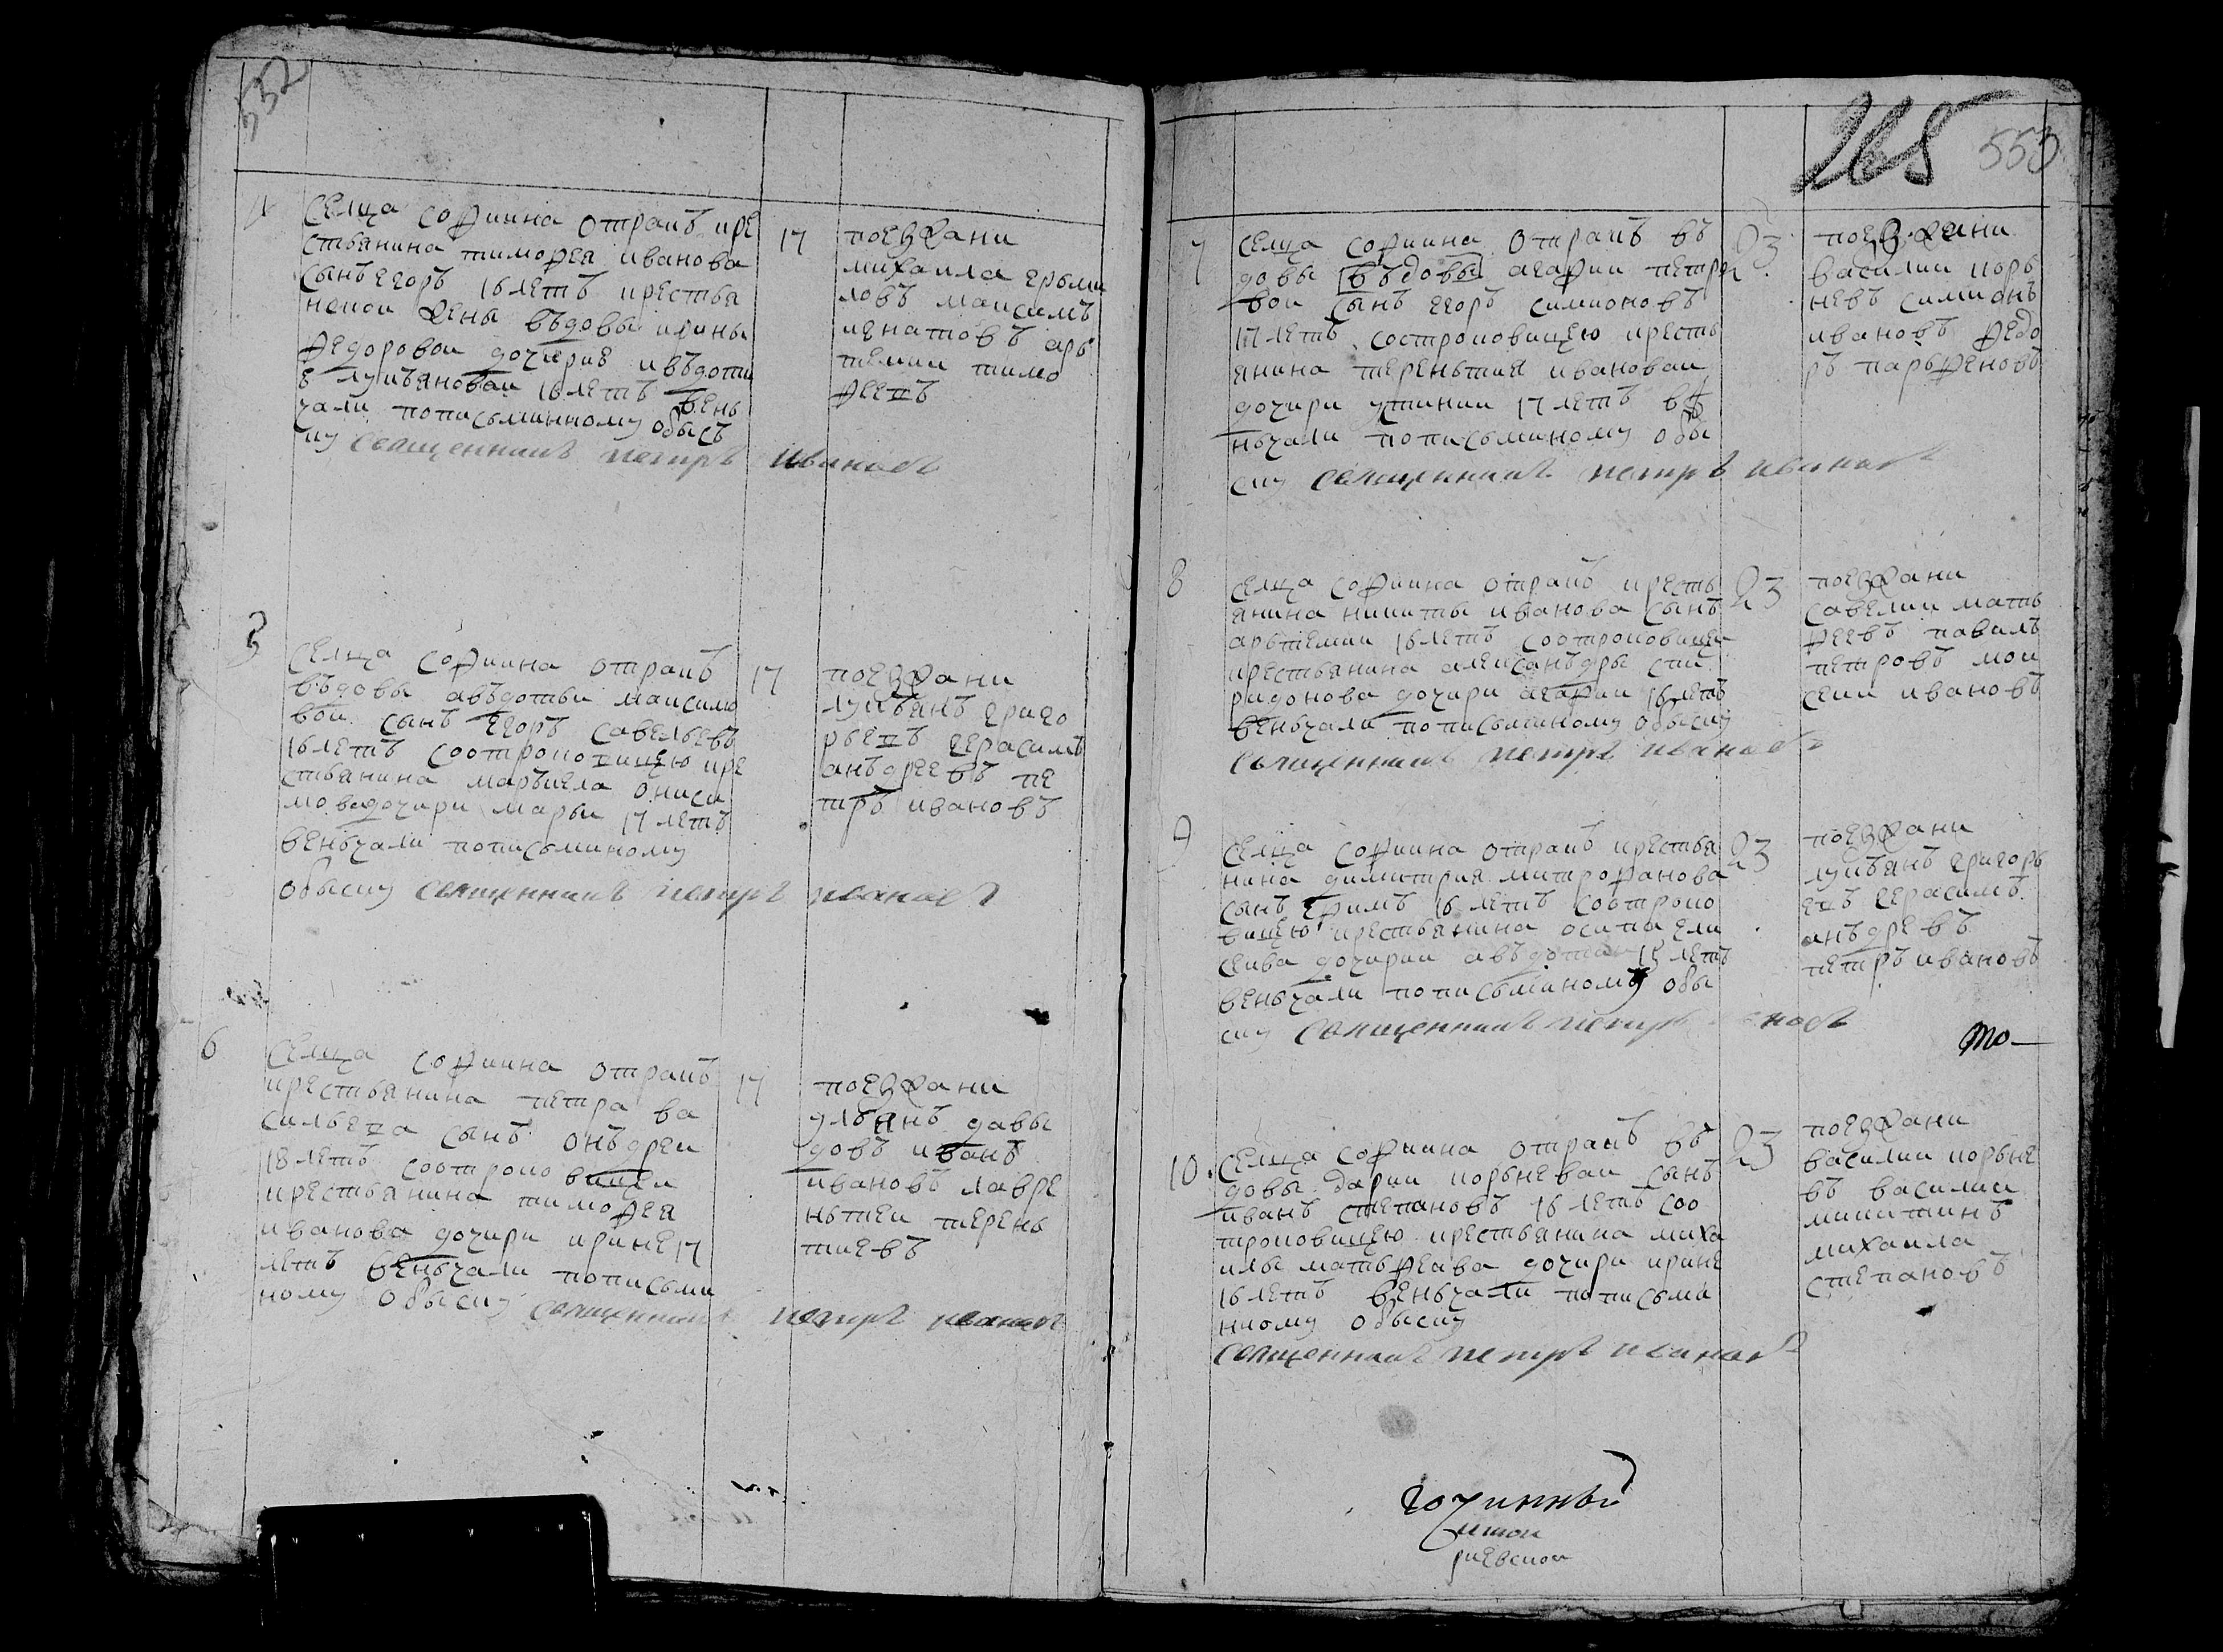 532
4
Селца Софиина отракъ кре
стьянина тимофея иванова
сынъ егоръ 16 летъ крестья
нской жены въдовы ирины
федоровои дочерие ивъдоти
е лукъяновои 16 летъ вень
чали пописьминному обысъ
ку священникъ петръ ивановъ
17
поезжани
михаила ерьми
ловъ максимъ
игнатовъ арь
темии тимо
феевъ
5
Селца Софиина отракъ
въдовы авъдотьи максимо
вои сынъ егоръ савельевъ
16 летъ соотроковицею кре
стьянина маръкела ониси
мова дочери марьи 17 летъ
веньчали пописьминому
обыску священникъ петръ ивановъ
17
поезжани
лукъянъ григо
рьевъ герасимъ
анъдреевъ пе
тръ ивановъ
6
Селца Софиина отракъ
крестьянина петра ва
сильева сынъ онъдреи
18 летъ соотроко вицеи
крестьянина тимофея
иванова дочери ирине 17
летъ веньчали пописьми
ному обыску священникъ петръ ивановъ
17
поезжани
ульянъ давы
довъ иванъ
ивановъ лавре
ньтеи терень
тиевъ
265 553
7
Селца Софиина отракъ въ
довы въдовы агафии петро
вои сынъ егоръ симионовъ
17 летъ состроковицею кресть
янина тереньтия ивановаи
дочири устинии 17 летъ ве
ньчали пописьминому обы
ску священникъ петръ ивановъ
23
поезжани
василии корь
невъ симионъ
ивановъ федо
ръ парьфеновъ
8
Селца Софиина отракъ кресть
янина никиты иванова сынъ
арьтемии 16 летъ соотроковицеи
крестьянина алексанъдры спи
ридонова дочири агафии 16 летъ
веньчали пописьминому обыску
священникъ петръ ивановъ
23
поезжани
савелии мать
феевъ павилъ
петровъ мои
сеии ивановъ
9
Селца Софиина отракъ крестья
нина димитрия митрофанова
сынъ ефимъ 16 летъ соотроко
вицею крестьянина осипа ели
сеива дочирии авъдотьи 15 летъ
веньчали пописьминому обы
ску священникъ петръ ивановъ
23
поезжани
лукъянъ григорь
евъ герасимъ
анъдревъ
петръ ивановъ
то
10
Селца Софиина отракъ въ
довы дарии корьневаи сынъ
иванъ степановъ 16 летъ соо
троковицею крестьянина миха
илы матьфеава дочири ирине
16 летъ веньчали пописьми
нному обыску
священникъ петръ ивановъ
23
поезжани
василии корьне
въ василии
микитинъ
михаила
степановъ